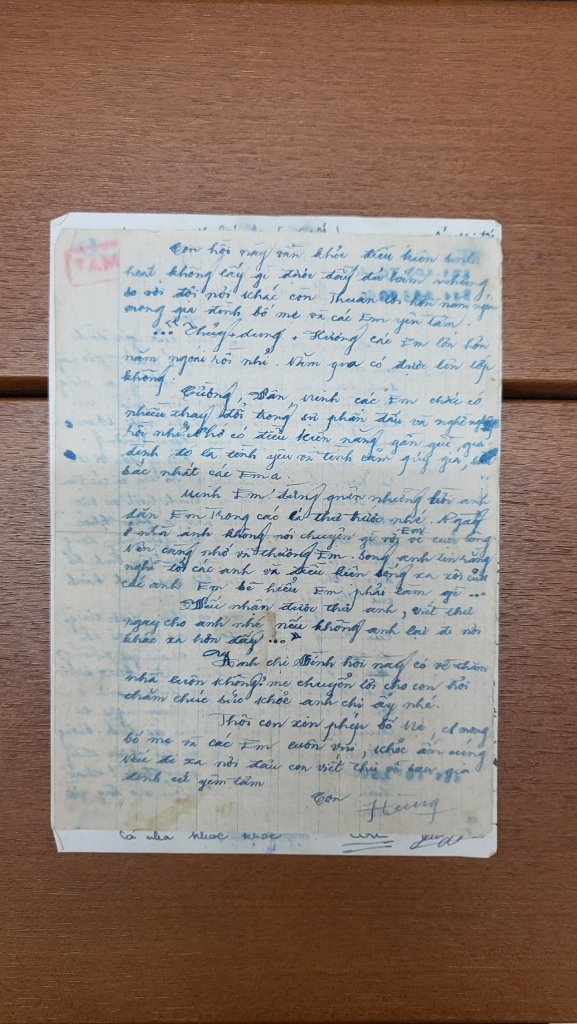 MẬT
Con hồi này vẫn khỏe điều kiện sinh
hoạt không lấy gì được đầy đủ lắm nhưng
so với đội nơi khác con thuận lợi hơn năm ngoái
mong gia đình, bố mẹ và các Em yên tâm.
... Thủy + dung + Hương các Em lớn hơn
năm ngoái rồi nhỉ. Năm qua có được lên lớp
không.
Cường, Dân, minh các Em chắc có
nhiều thay đổi trong sự phấn đấu và nghề nghiệp
rồi nhỉ. Nhớ có điều kiện năng gần gũi gia
đình đó là tình yêu và tình cảm quý giá,
bậc nhất các Em ạ.
minh Em! đừng quên những lời anh
dặn Em trong các lá thư trước nhé. Ngày
ở nhà anh không nói chuyện gì với Em về cuộc sống
nên càng nhớ và thương Em. Song anh tin rằng
nghe lời các anh và điều kiện sống xa xôi của
các anh Em sẽ hiểu Em phải làm gì ...
Nếu nhận được thư anh, viết thư
ngay cho anh nhé nếu không anh lại đi nơi
khác xa hơn đấy ...
Anh chị Bình hồi này có về thăm
nhà luôn không? mẹ chuyển lời cho con hỏi
thăm chúc sức khỏe anh chị ấy nhé.
Thôi con xin phép bố mẹ, mong
bố mẹ và các Em luôn vui, khỏe ấm cúng
nếu đi xa nơi đâu con viết thư về sau, gia
đình cứ yên tâm
Con
Hùng
Cả nhà khỏe khỏe